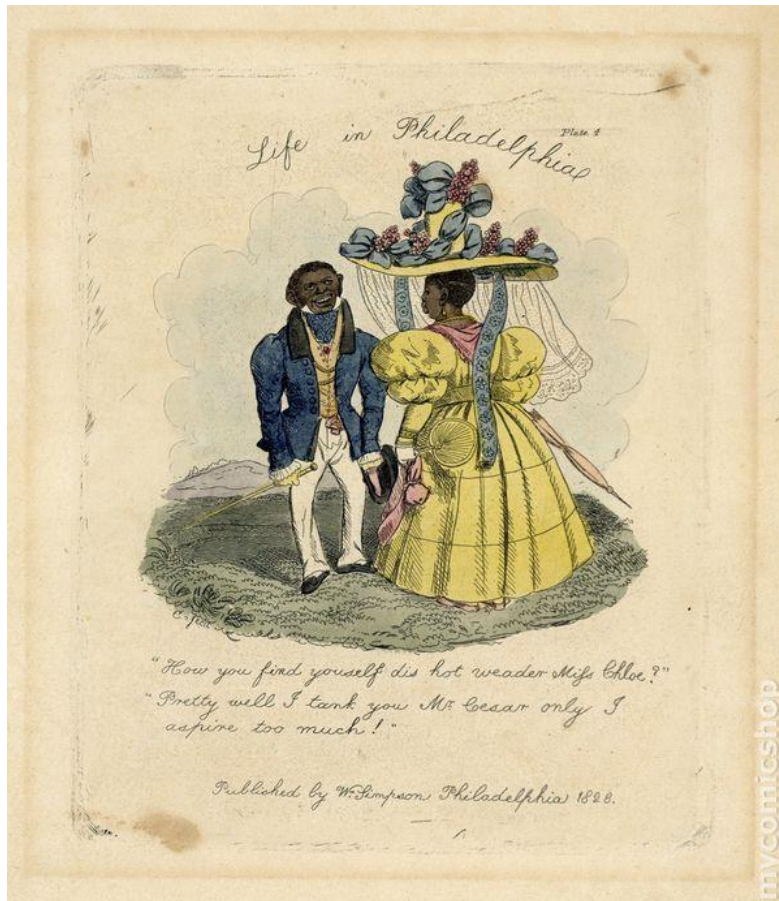 Life in Philadelphia
Plate 4
"How you find youself dis hot weader Miſs Chloe?"
"Pretty well I tank you Mr. Cesar only I
aspire too much!"
Published by W. Simpson Philadelphia 1828.
mycomicshop